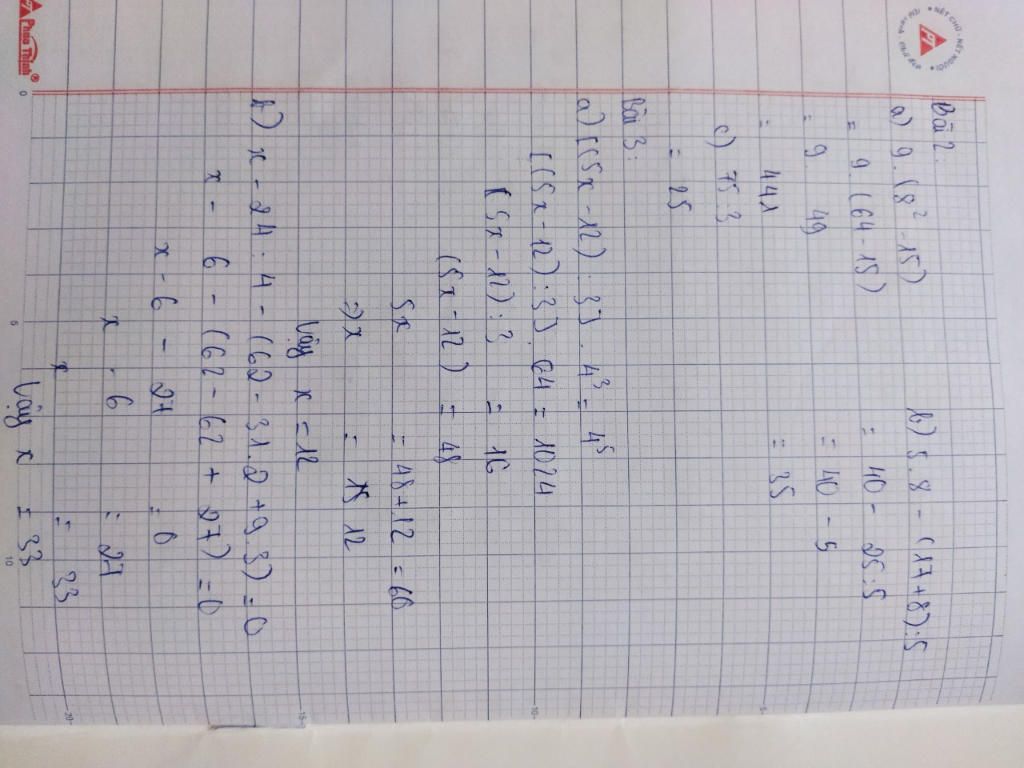 NÉT CHỮ - NẾT NGƯỜI
PT
Phao Thịnh®
Bài 2.
a) 9. (8² - 15)
= 9. (64 - 15)
= 9. 49
= 441
b) 5.8 - (17+8):5
= 40 - 25:5
= 40 - 5
= 35
c) 75:3
= 25
Bài 3:
a) [(5x - 12) : 3] . 4³ = 4⁵
[(5x - 12) : 3] . 64 = 1024
(5x - 12) : 3 = 16
(5x - 12) = 48
5x = 48 + 12 = 60
=> x = 12
Vậy x = 12
b) x - 24 : 4 - (62 - 31.2 + 9.3) = 0
x - 6 - (62 - 62 + 27) = 0
x - 6 - 27 = 0
x - 6 = 27
x = 33
Vậy x = 33
0
5
10
5
10
15
20